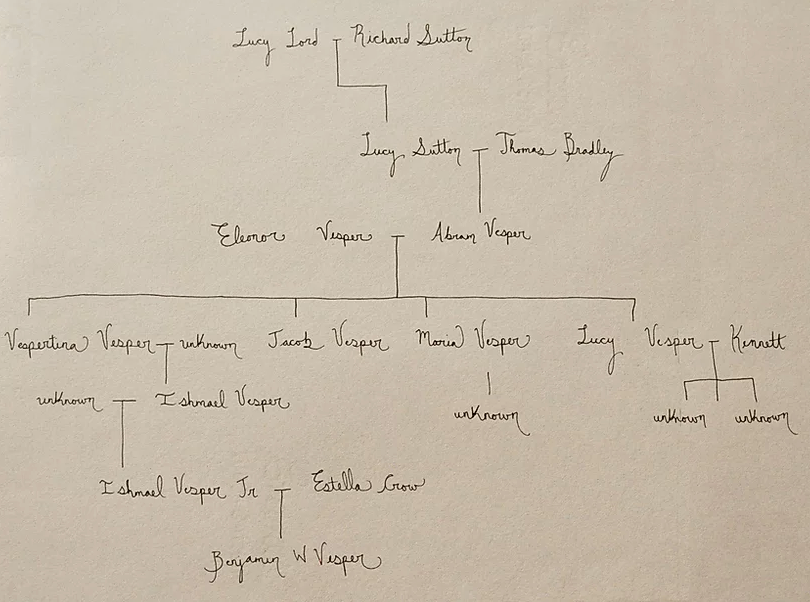 Lucy Lord Richard Sutton
Lucy Sutton Thomas Bradley
Eleonor Vesper Abram Vesper
Vespertina Vesper unknown Jacob Vesper Maria Vesper Lucy Vesper Kennett
unknown Ishmael Vesper unknown unknown unknown
Ishmael Vesper Jr Estella Crow
Benjamin W Vesper